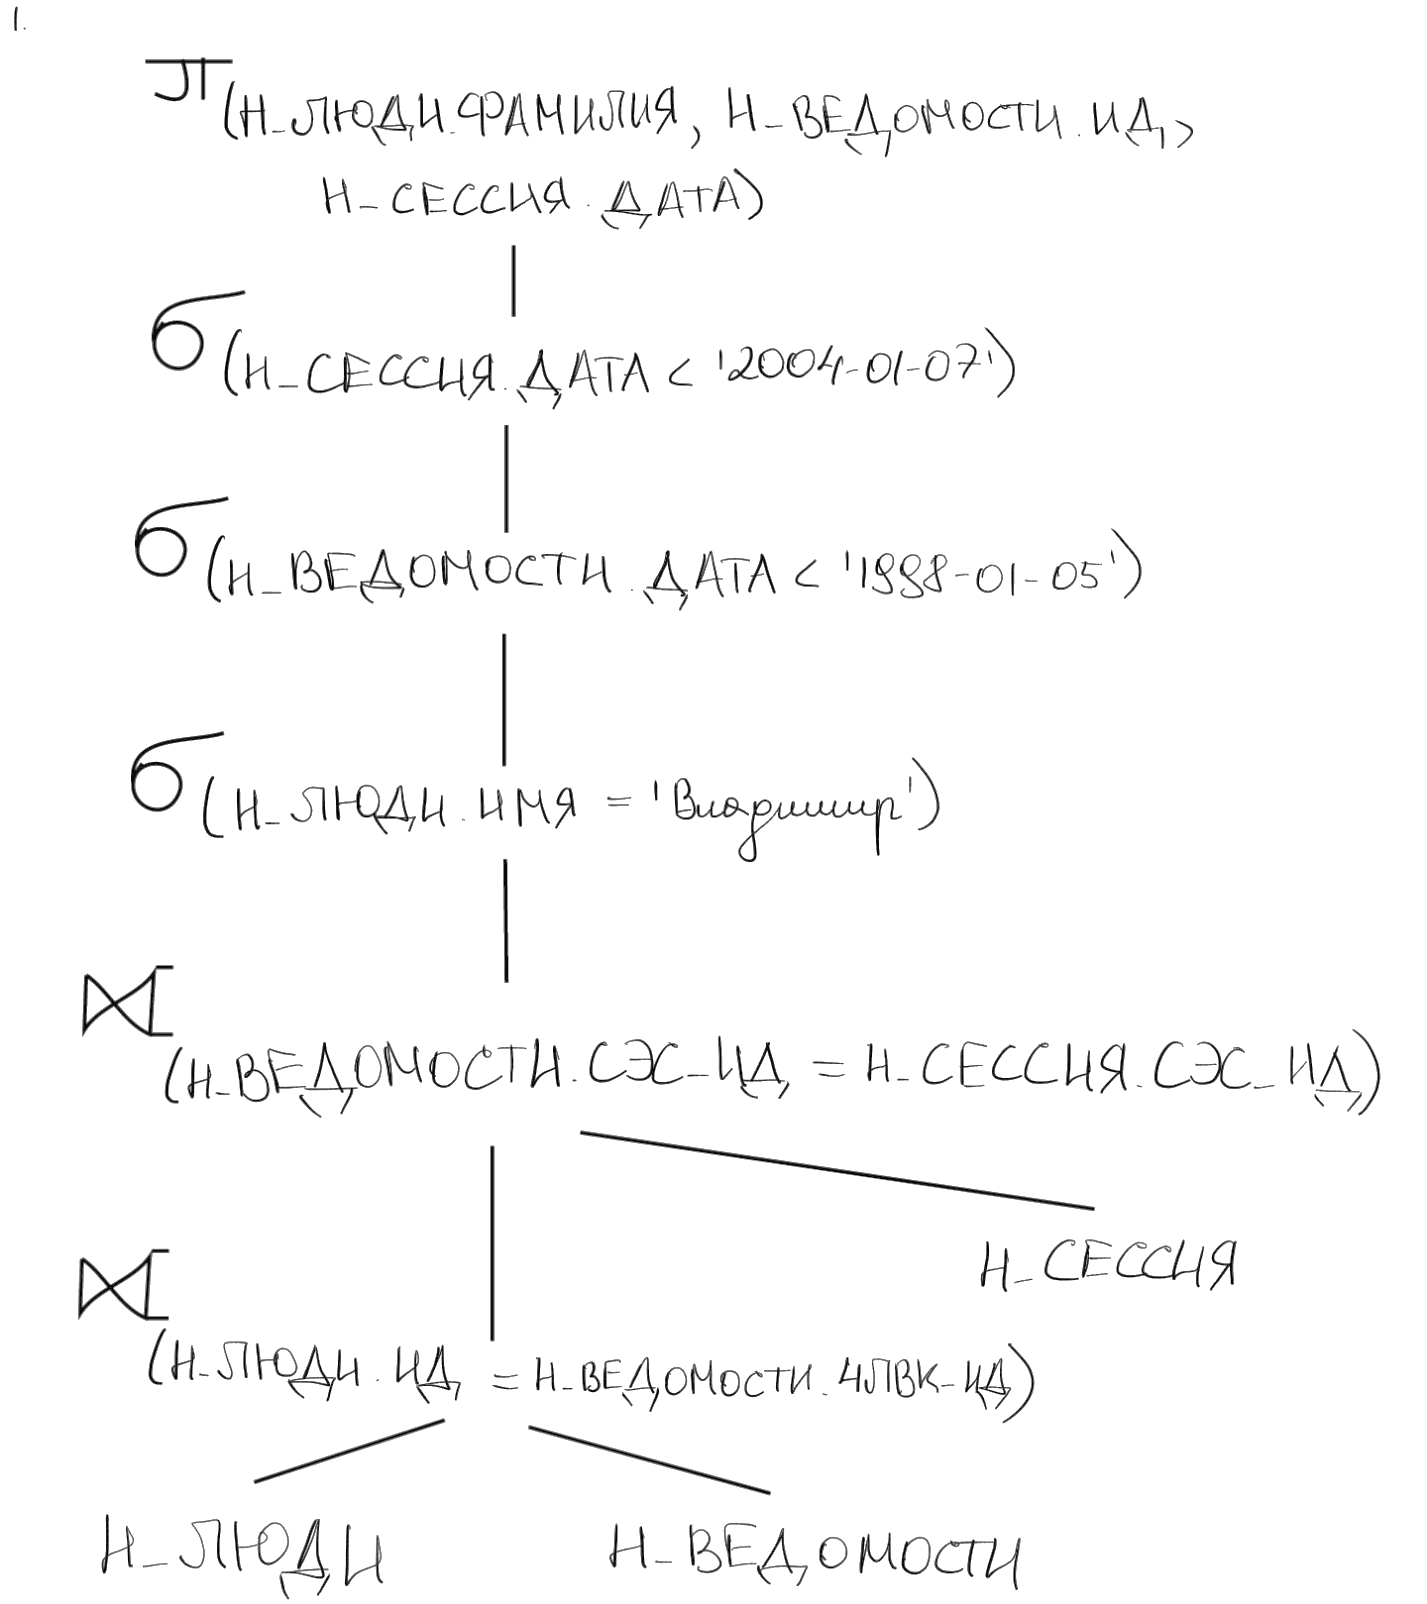 1.
π
(Н_ЛЮДИ.ФАМИЛИЯ, Н_ВЕДОМОСТИ.ИД,
Н_СЕССИЯ.ДАТА)
σ
(Н_СЕССИЯ.ДАТА < '2004-01-07')
σ
(Н_ВЕДОМОСТИ.ДАТА < '1998-01-05')
σ
(Н_ЛЮДИ.ИМЯ = 'Владимир')
⟖
(Н_ВЕДОМОСТИ.СЭС_ИД = Н_СЕССИЯ.СЭС_ИД)
Н_СЕССИЯ
⟖
(Н_ЛЮДИ.ИД = Н_ВЕДОМОСТИ.ЧЛВК_ИД)
Н_ЛЮДИ Н_ВЕДОМОСТИ